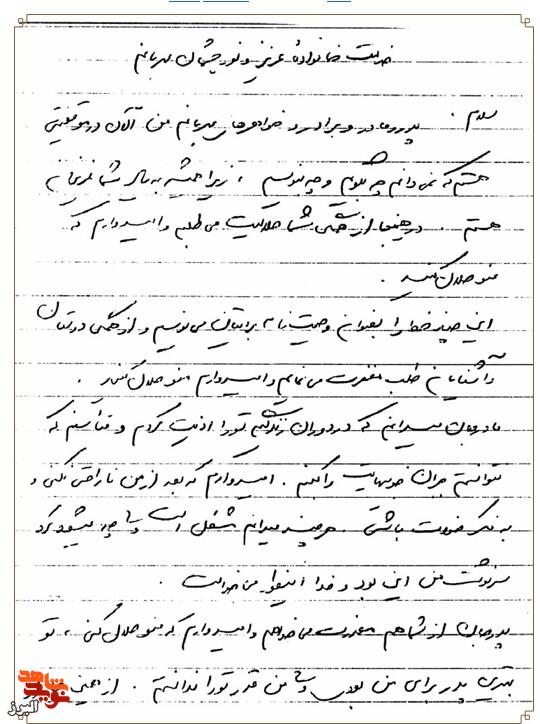 خدمت خانوادهٔ عزیز و نورچشمان مهربانم
سلام .
پدر و مادر و برادر و خواهرهای مهربانم من الان در موقعیتی
هستم که نمی دانم چه بگویم و چه بنویسم ، زیرا همیشه به یاد شما عزیزان
هستم . در اینجا از همگی شما حلالیت می طلبم و امیدوارم که
منو حلال کنید .
این چند خط را بعنوان وصیت نامه برایتان می نویسم و از همگی دوستان
و آشنایان طلب مغفرت می نمایم و امیدوارم منو حلال کنید .
مادرجان میدانم که در دوران زندگیم تو را اذیت کردم و متأسفم که
نتوانستم جبران خوبیهایت را بکنم . امیدوارم که بعد از من ناراحتی نکنی و
به فکر خودت باشی . هرچند میدانم مشکل است ولی چه میشود کرد
سرنوشت من این بود و خدا اینطور می خواست .
پدرجان از شما هم معذرت می خواهم و امیدوارم که منو حلال کنی ، تو
بهترین پدر برای من بودی ولی من قدر تو را ندانستم . از همین
شاهد
نوید
البرز